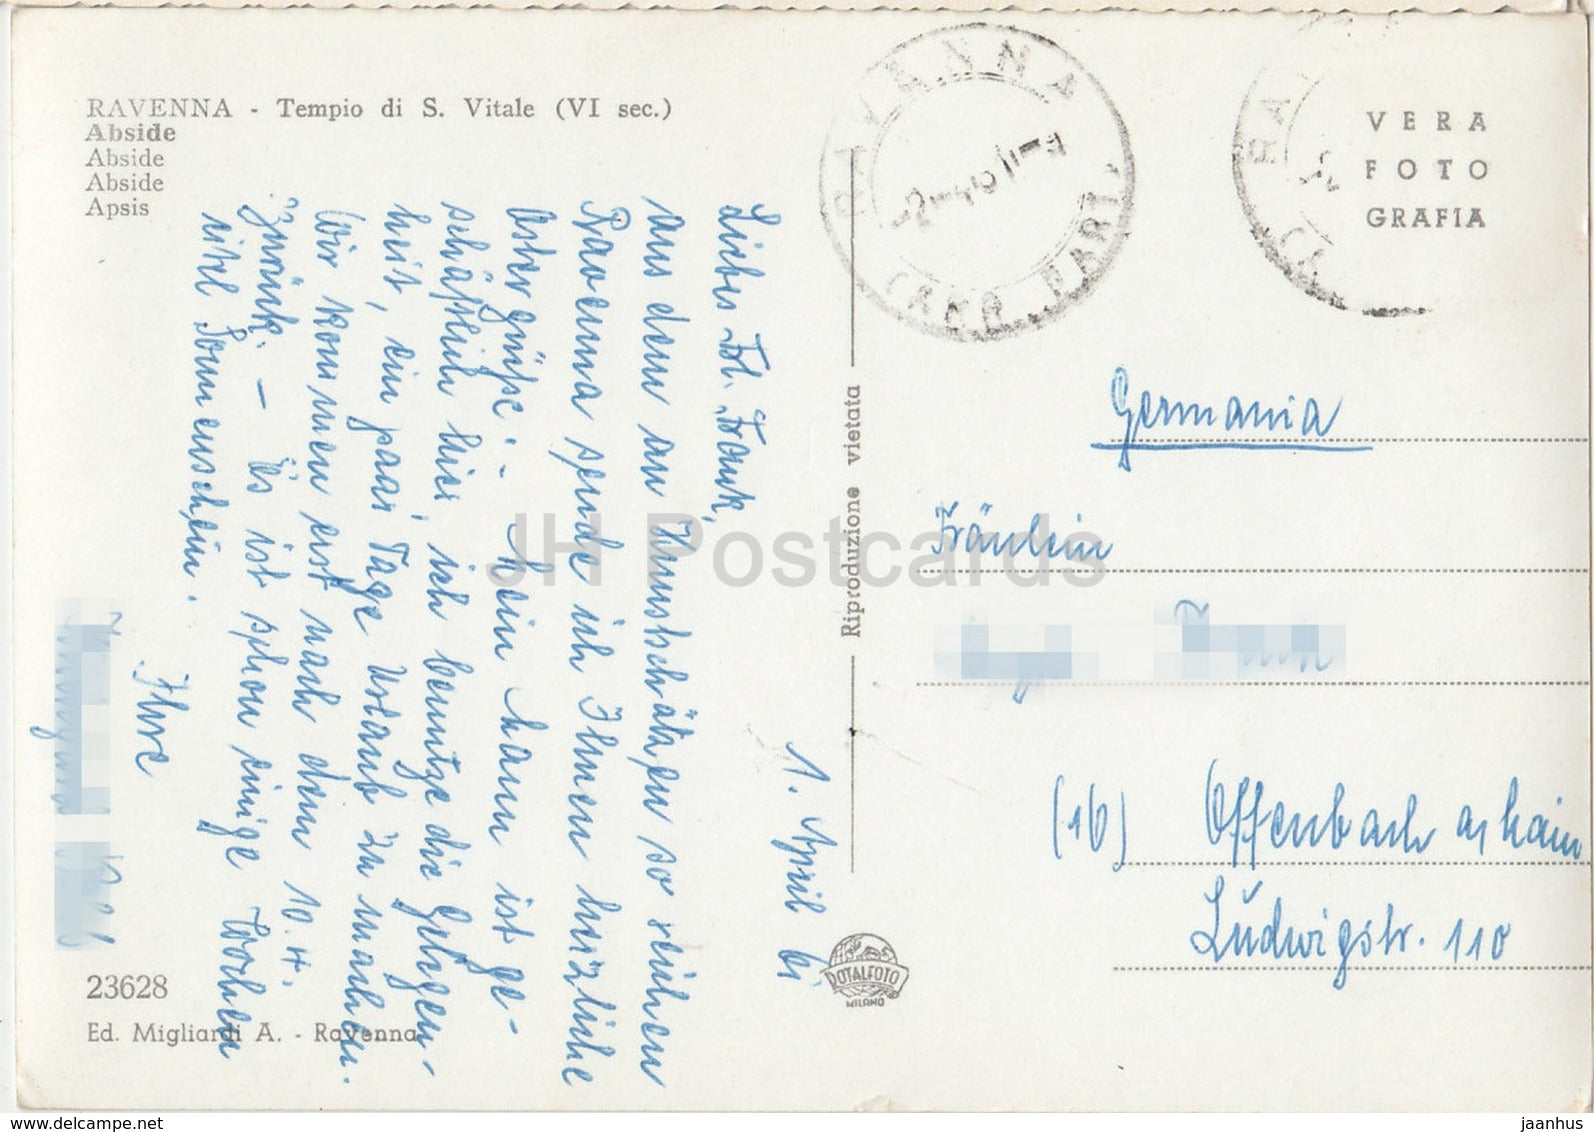 RAVENNA - Tempio di S. Vitale (VI sec.)
Abside
Abside
Abside
Apsis
VERA
FOTO
GRAFIA
RAVENNA
1. April 61
Liebes Frl. Frank,
aus dem an Kunstschätzen so reichen
Ravenna sende ich Ihnen herzliche
Ostergrüße. - Mein Mann ist ge-
schäftlich hier, ich benutze die Gelegen-
heit, ein paar Tage Urlaub zu machen.
Wir kommen erst nach dem 10.4.
zurück. - Es ist schon einige Wochen
viel Sonnenschein.
Ihre
Riproduzione vietata
Germania
Fräulein
(16) Offenbach a/Main
Ludwigstr. 110
ROTALFOTO
MILANO
23628
Ed. Migliardi A. - Ravenna
JH Postcards
www.delcampe.net
jaanhus